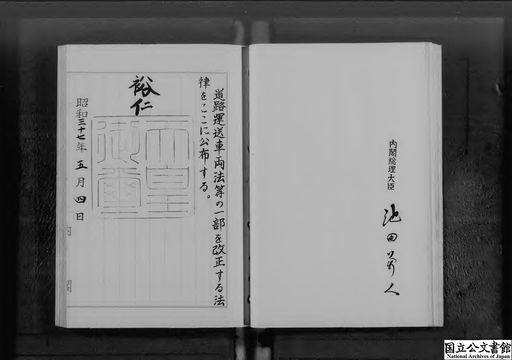 道路運送車両法等の一部を改正する法
律をここに公布する。
裕仁
天皇
御璽
昭和三十七年五月四日
内閣総理大臣
池田勇人
国立公文書館
National Archives of Japan